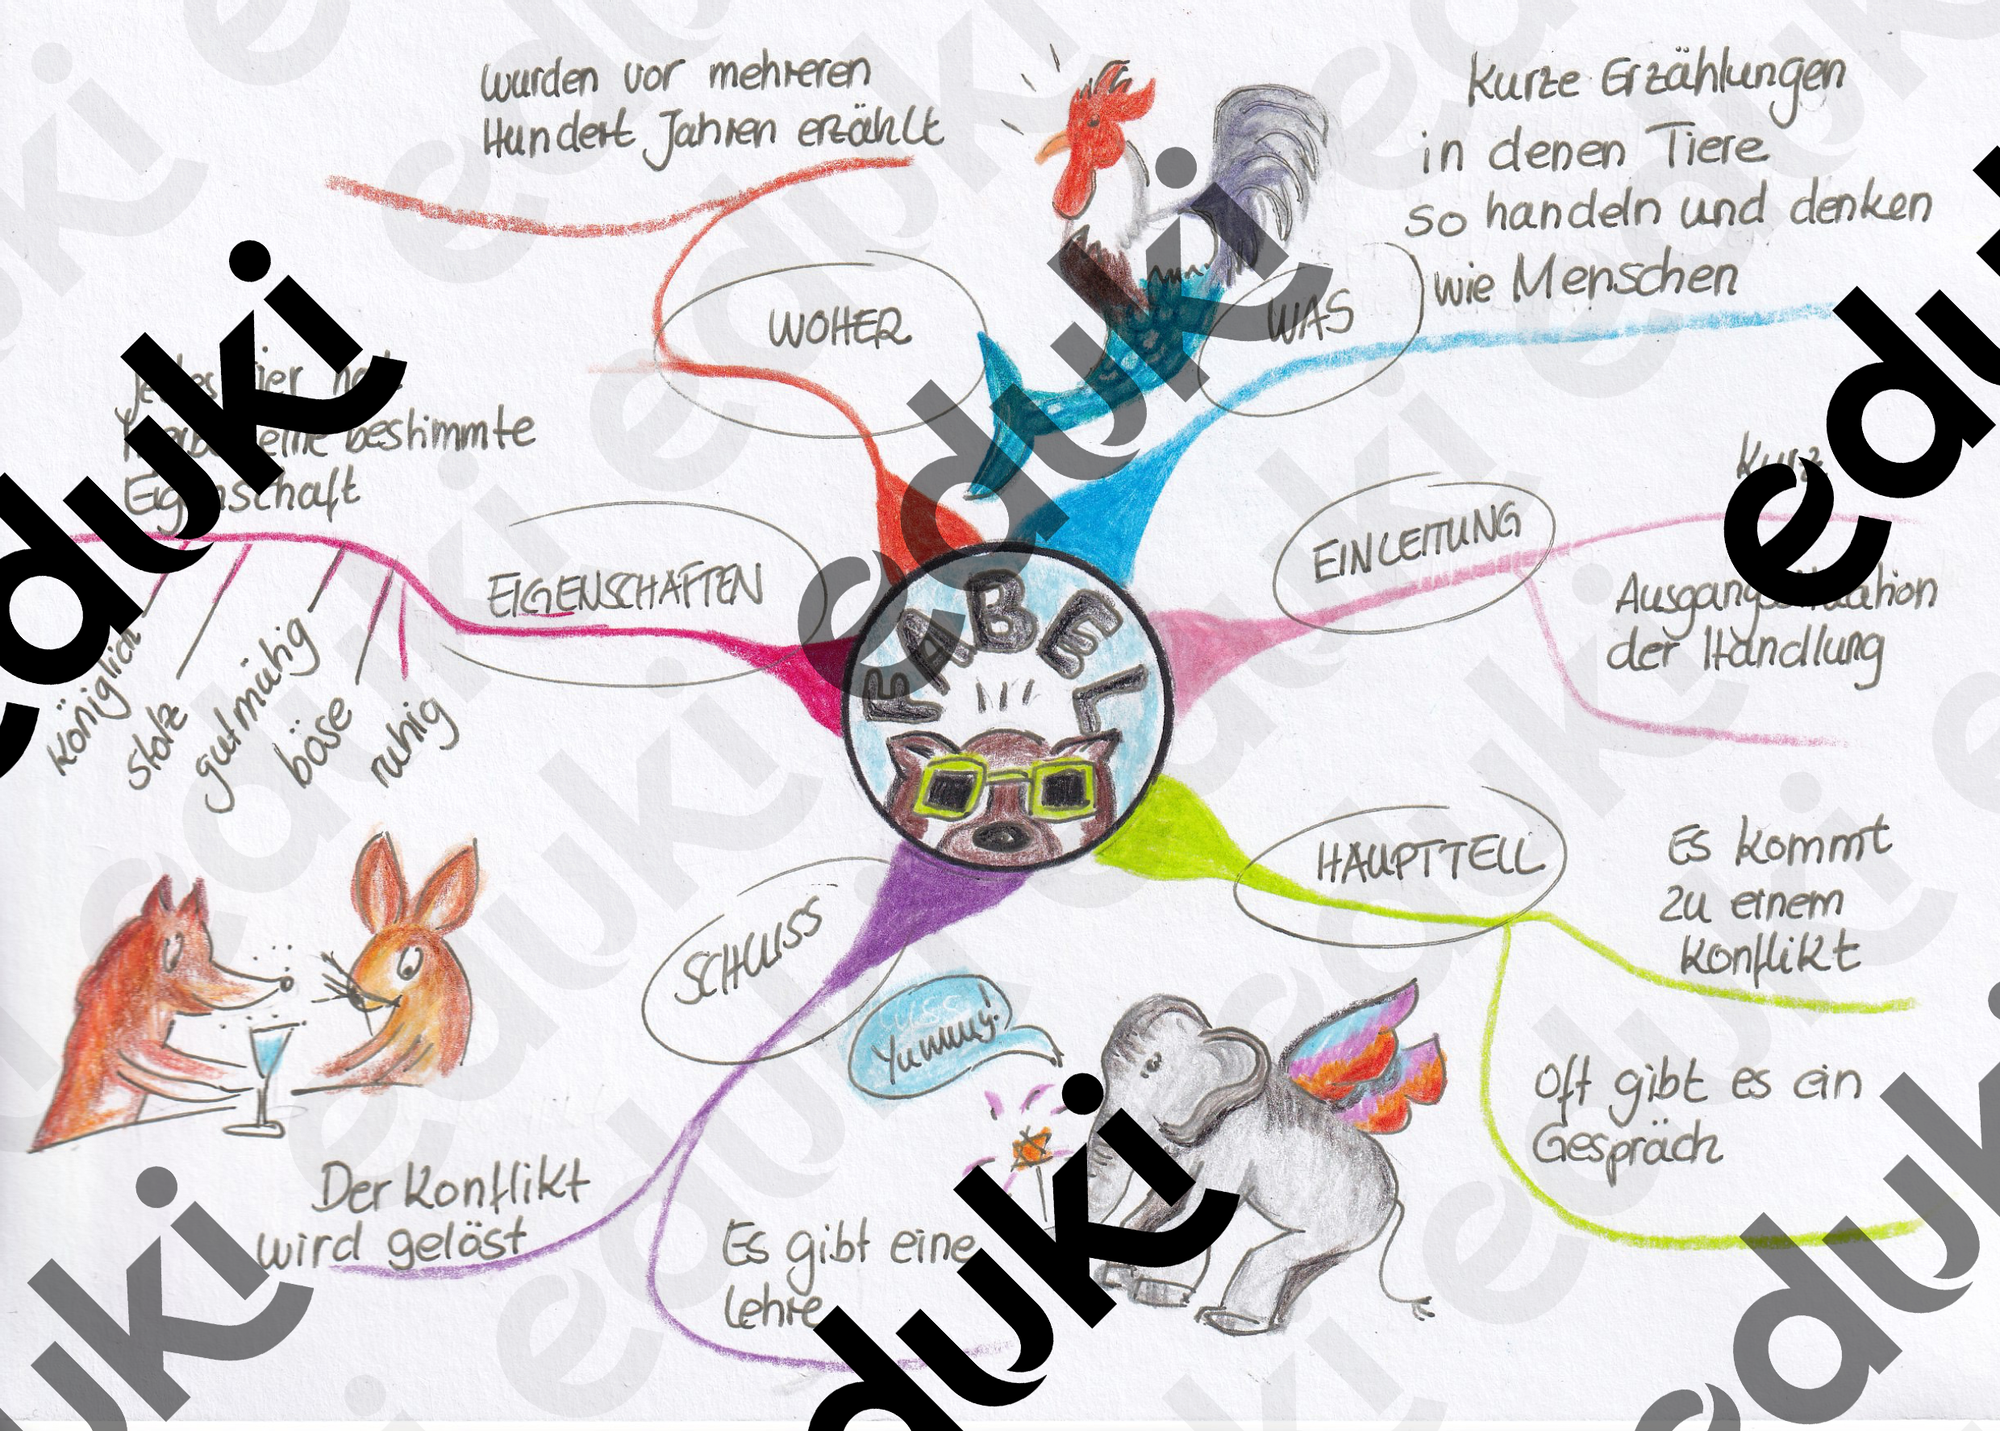 wurden vor mehreren
Hundert Jahren erzählt
WOHER
Kurze Erzählungen
in denen Tiere
so handeln und denken
wie Menschen
WAS
bestimmte
Eigenschaft
EIGENSCHAFTEN
königlich
stolz
gutmütig
böse
ruhig
FABEL
EINLEITUNG
Kurz
Ausgangssituation
der Handlung
HAUPTTEIL
Es kommt
zu einem
Konflikt
Oft gibt es ein
Gespräch
SCHLUSS
Yummy!
Der Konflikt
wird gelöst
Es gibt eine
Lehre
eduki
eduki
eduki
eduki
eduki
eduki